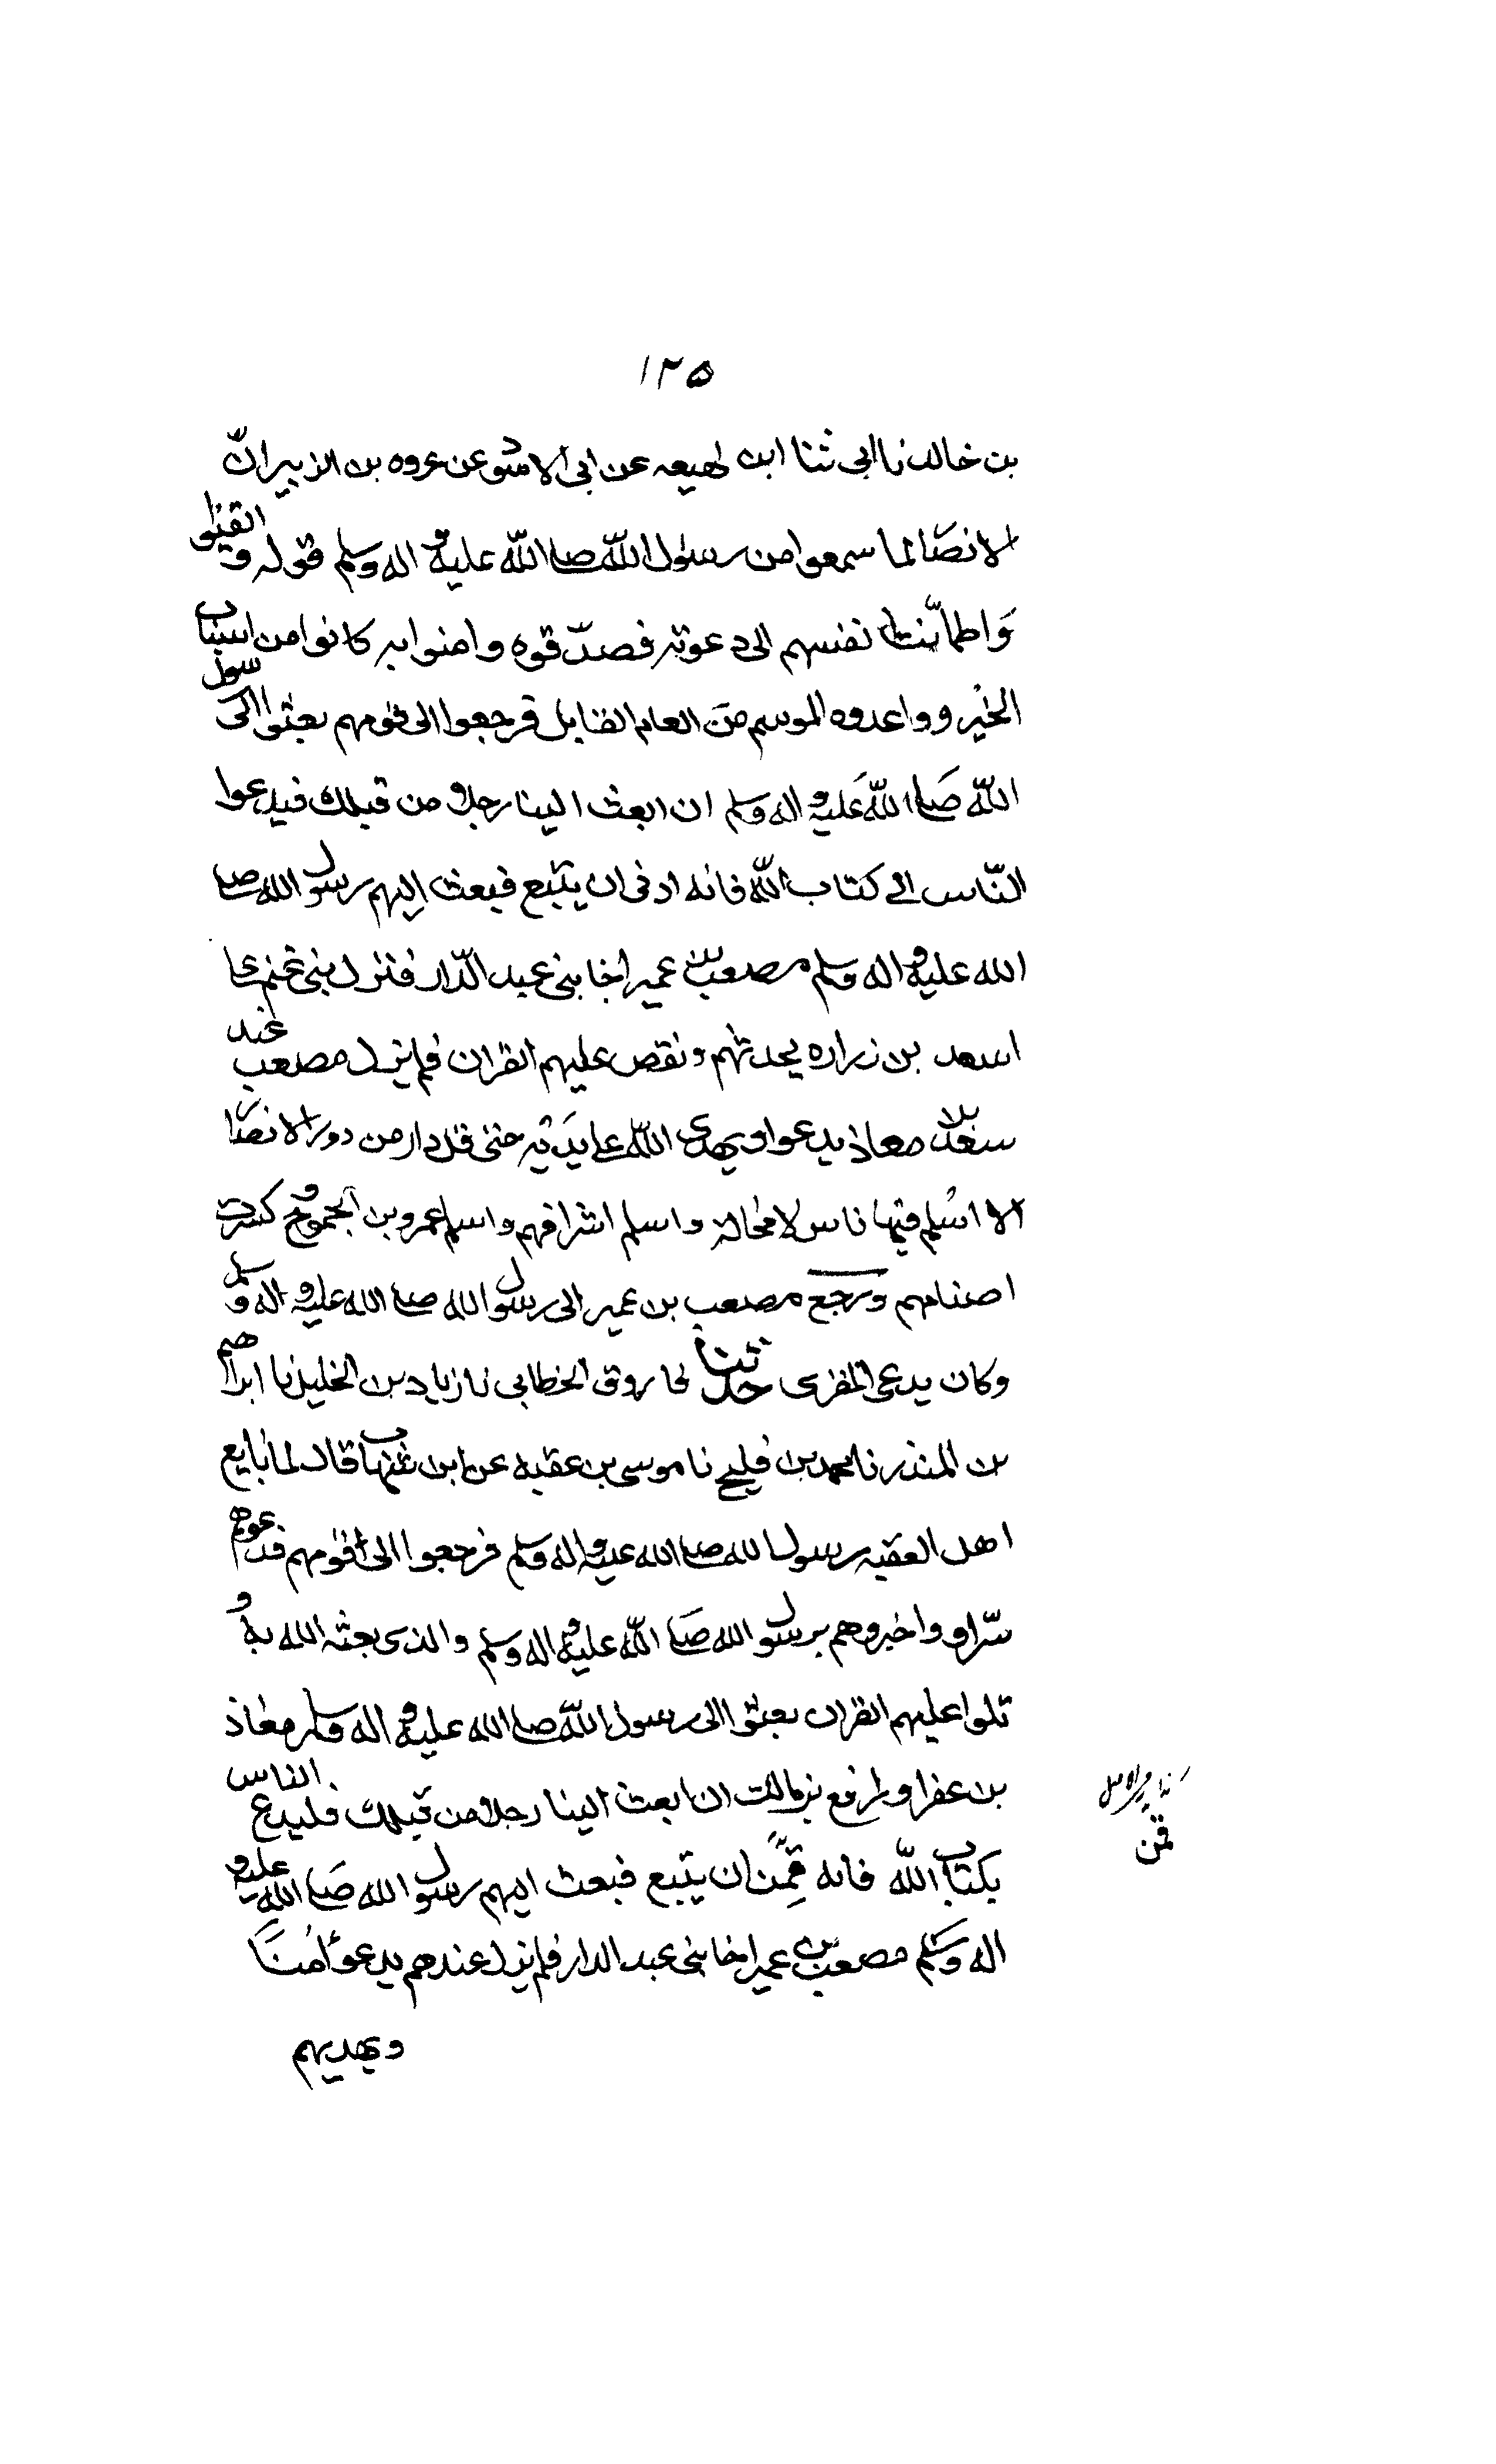 ١٢٥
بن خالد نا ابي ثنا ابن لهيعه عن ابي الاسود عن عروه بن الزبير انّ
الانصار لما سمعوا من رسول اللّه صلى اللّه عليه واله وسلم قوله وايقنوا
واطمأنت انفسهم الى دعوته فصدّقوه وامنوا به كانوا من اسباب
الخير وواعدوه الموسم من العام القابل فرجعوا الى قومهم بعثوا الى رسول
اللّه صلى اللّه عليه واله وسلم ان ابعث الينا رجلا من قبلك فيدعوا
النّاس الى كتاب اللّه فانه ادنى ان يتبع فبعث اليهم رسول الله صلى
الله عليه واله وسلم مصعب بن عمير اخا بنى عبد الدّار فنزل بنى غنم على
اسعد بن زراره يحدثهم ونقص عليهم القران فلم يزل مصعب عند
سعد بن معاذ يدعوا ويهدى اللّه على يديه حتى قل دار من دور الانصار
الا اسلم فيها ناس لا محالة واسلم اشرافهم واسلم عمرو بن الجموح وكسرت
اصنامهم ورجع مصعب بن عمير الى رسول الله صلى الله عليه واله وسلم
وكان يدعى المقرى حدثنا فاروق الخطابي نا زياد بن الخليل نا ابراهيم
بن المنذر نا محمد بن فليح نا موسى بن عقبه عن ابن شهاب قال لما بايع
اهل العقبه رسول الله صلى الله عليه واله وسلم فرجعوا الى قومهم فدعوهم
سّرا و واخبروهم برسول الله صلى اللّه عليه واله وسلم والذى بعثه الله به و
تلوا عليهم القران بعثوا الى رسول اللّه صلى الله عليه واله وسلم معاذ
بن عفرا ورافع بن مالك ان ابعث الينا رجلا من قبلك فليدع الناس
بكتاب اللّه فانه قمن ان يتبع فبعث اليهم رسول الله صلى الله عليه و
اله وسلم مصعب بن عمير اخا بنى عبد الدار فلم يزل عندهم يدعو امنا
ويهديهم
قمن